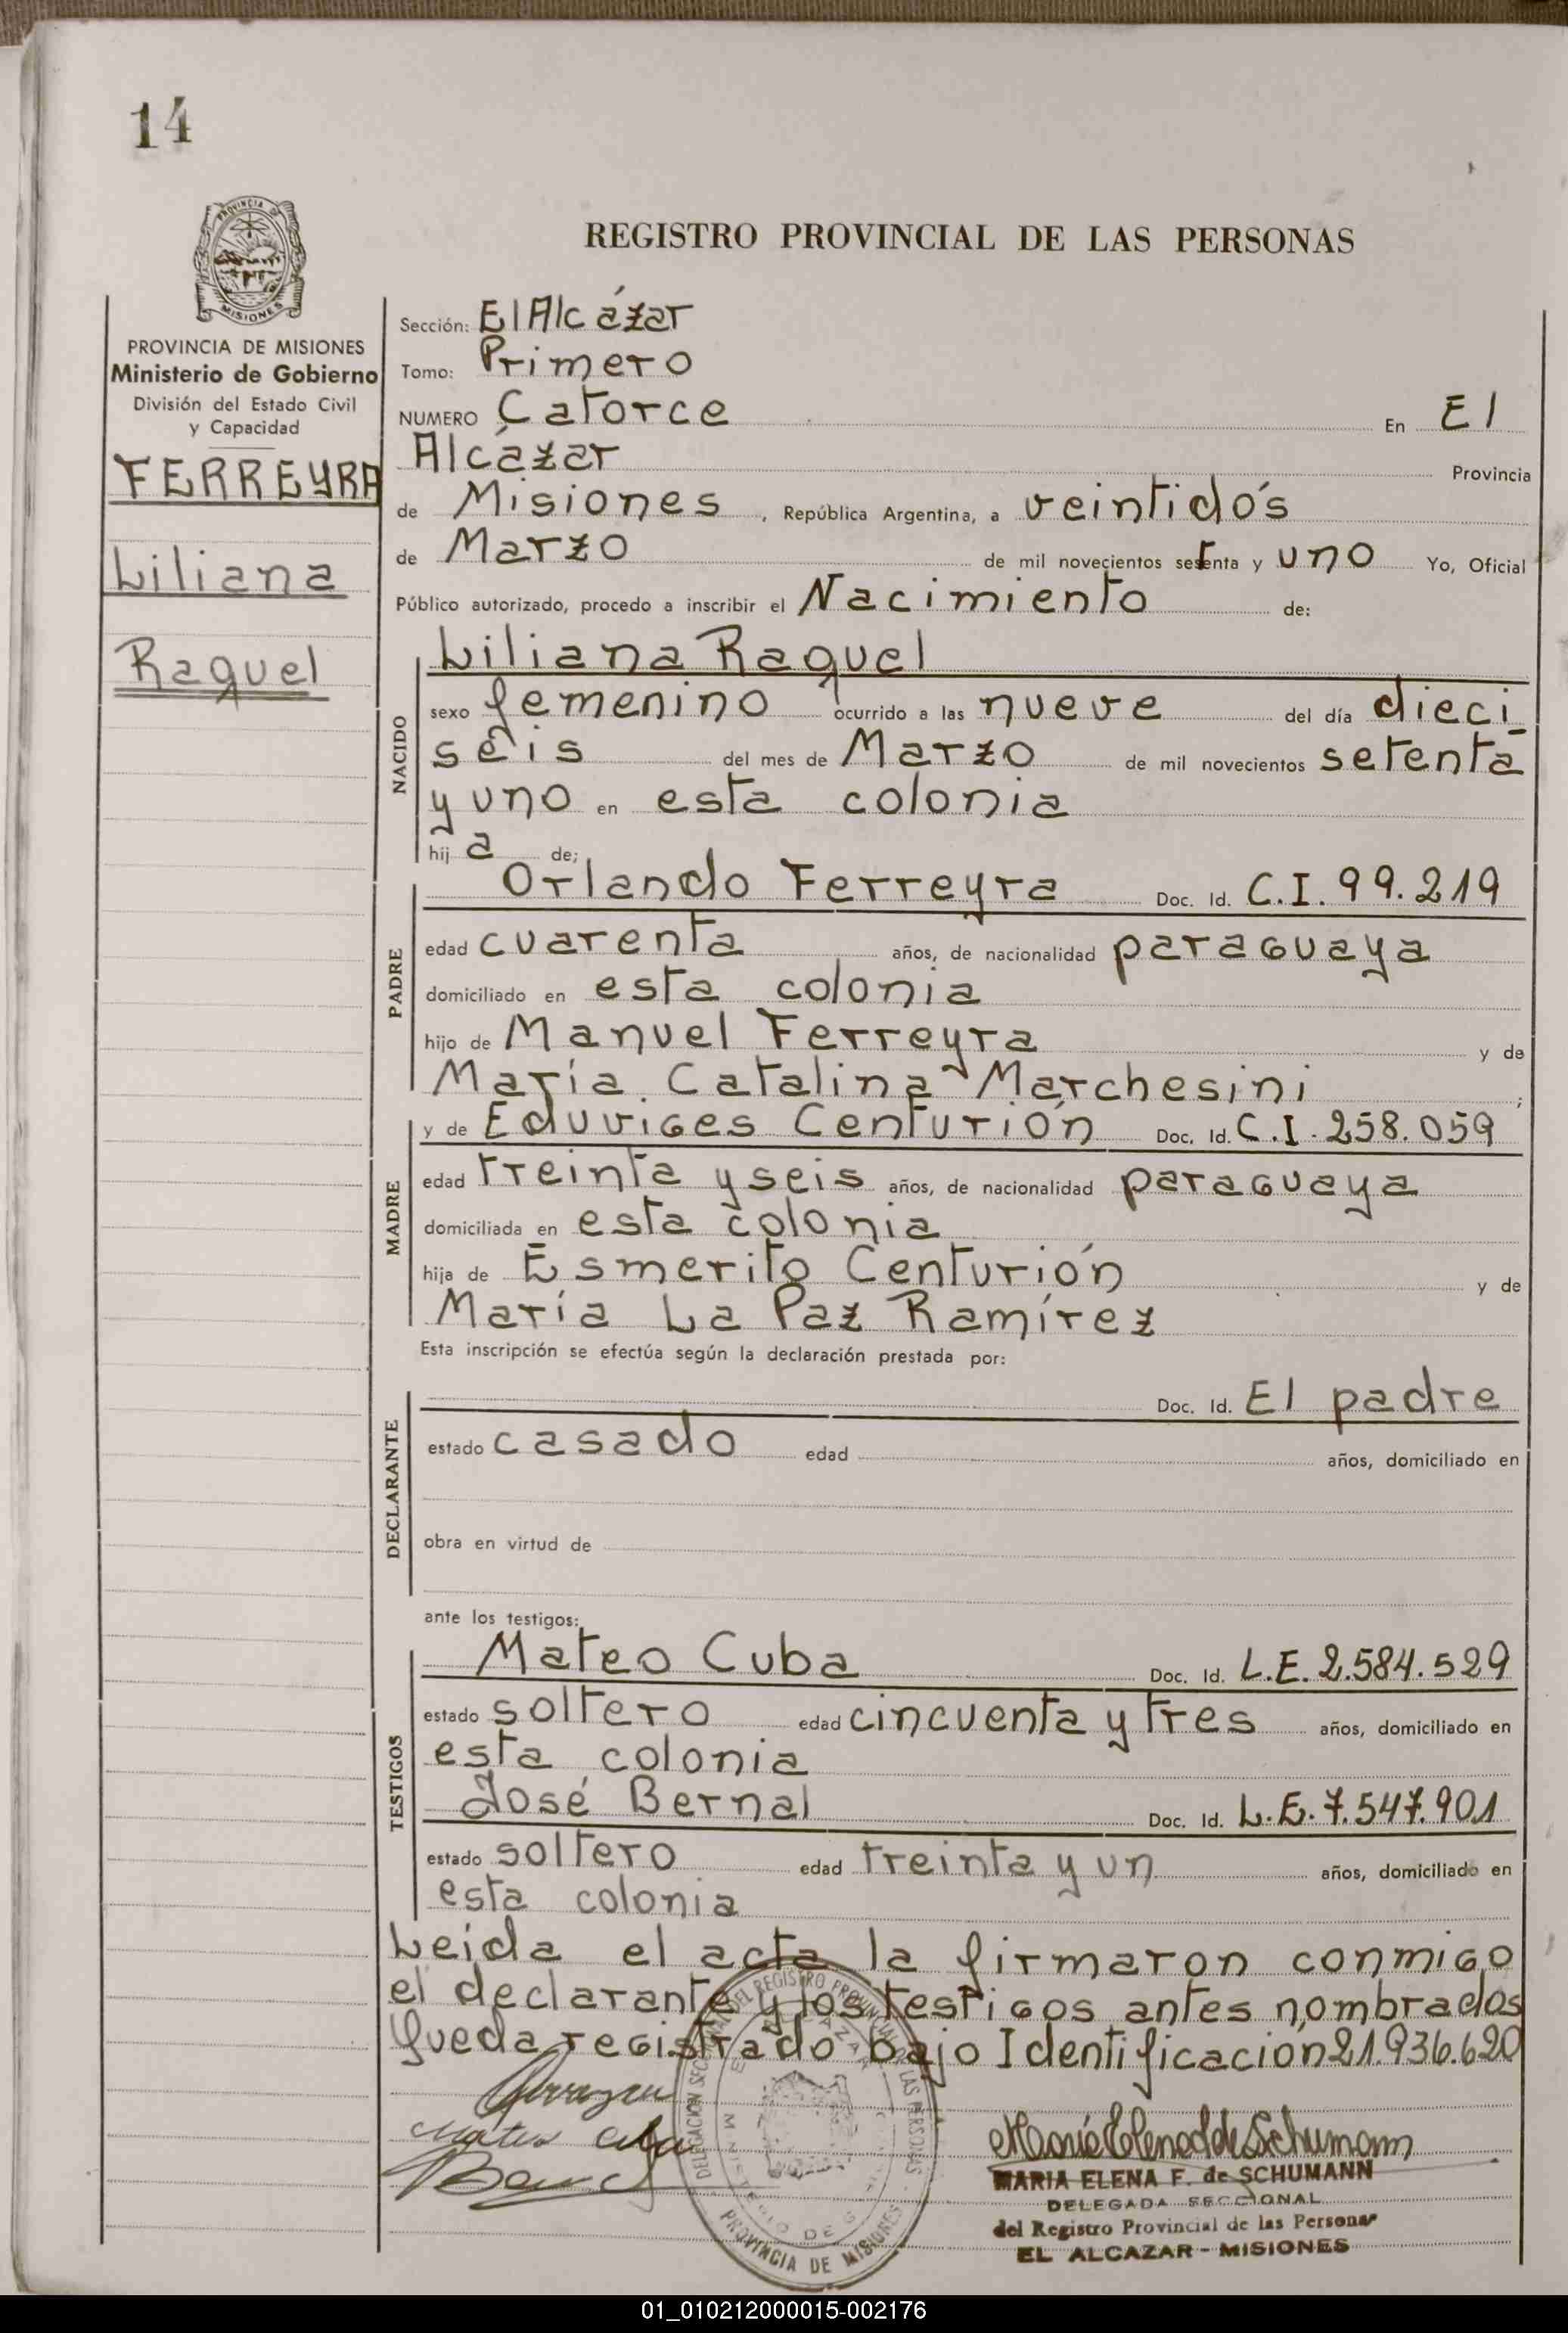 14
PROVINCIA DE
MISIONES
REGISTRO PROVINCIAL DE LAS PERSONAS
PROVINCIA DE MISIONES
Ministerio de Gobierno
División del Estado Civil
y Capacidad
FERREYRA
Liliana
Raquel
Sección: El Alcázar
Tomo: Primero
NUMERO Catorce En El
Alcázar Provincia
de Misiones, República Argentina, a veintidós
de Marzo de mil novecientos setenta y uno Yo, Oficial
Público autorizado, procedo a inscribir el Nacimiento de:
NACIDO
Liliana Raquel
sexo femenino ocurrido a las nueve del día dieci
seis del mes de Marzo de mil novecientos setenta
y uno en esta colonia
hij a de;
PADRE
Orlando Ferreyra Doc. Id. C.I. 99.219
edad cuarenta años, de nacionalidad paraguaya
domiciliado en esta colonia
hijo de Manuel Ferreyra y de
María Catalina Marchesini ;
MADRE
y de Eduviges Centurión Doc. Id. C.I. 258.059
edad treinta y seis años, de nacionalidad paraguaya
domiciliada en esta colonia
hija de Esmerito Centurión y de
María La Paz Ramírez
Esta inscripción se efectúa según la declaración prestada por:
DECLARANTE
Doc. Id. El padre
estado casado edad años, domiciliado en
obra en virtud de
ante los testigos:
TESTIGOS
Mateo Cuba Doc. Id. L.E. 2.584.529
estado soltero edad cincuenta y tres años, domiciliado en
esta colonia
José Bernal Doc. Id. L.E. 7.547.901
estado soltero edad treinta y un años, domiciliado en
esta colonia
Leída el acta la firmaron conmigo
el declarante y los testigos antes nombrados
Queda registrado bajo Identificación 21.936.620
DELEGACION SECCIONAL DEL REGISTRO PROVINCIAL DE LAS PERSONAS
EL ALCAZAR
MINISTERIO DE
PROVINCIA DE MISIONES
Mateo Cuba
María Elena F de Schumann
MARIA ELENA F. de SCHUMANN
DELEGADA SECCIONAL
del Registro Provincial de las Personas
EL ALCAZAR - MISIONES
01_010212000015-002176